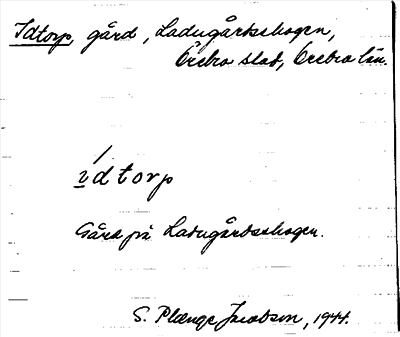 Idtorp, gård, Ladugårdsskogen,
Örebro stad, Örebro län.
ídtorp
Gård på Ladugårdsskogen.
S. Plænge Jacobson, 1944.